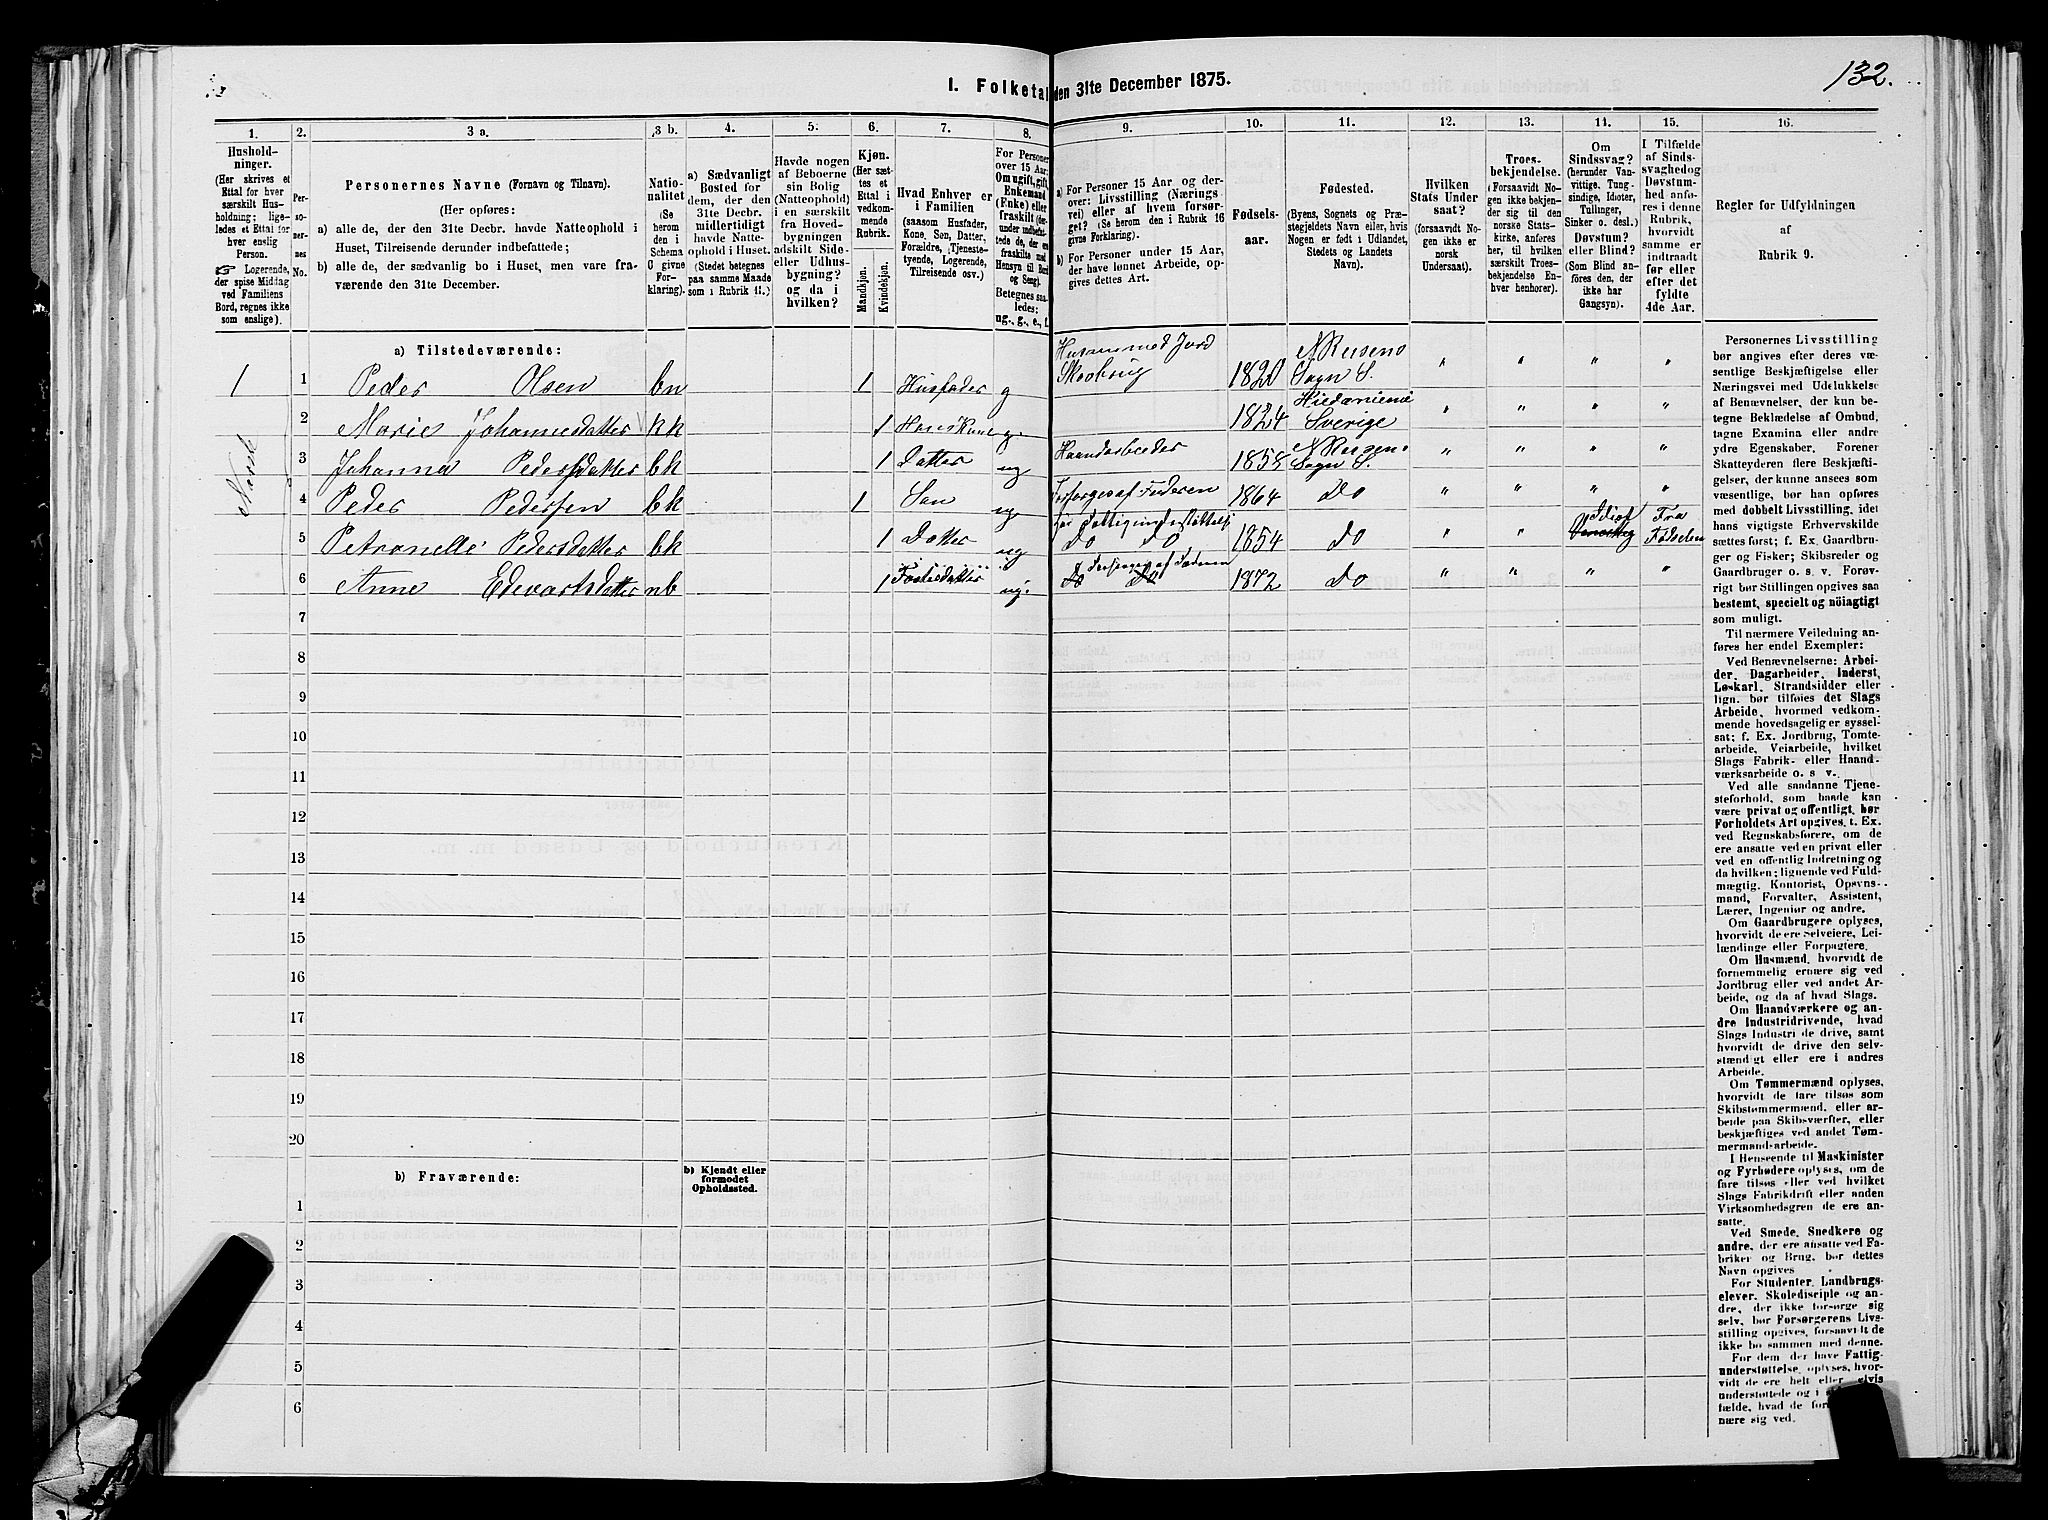 132.
I. Folketal den 31te December 1875.
1. 2. 3 a. 3 b. 4. 5. 6. 7. 8. 9. 10. 11. 12. 13. 14. 15. 16.
Hushold-
ninger.
(Her skrives et
Ettal for hver
særskilt Hus-
holdning; lige-
ledes et Ettal for
hver enslig
Person.
☞ Logerende,
der spise Middag
ved Familiens
Bord, regnes ikke
som enslige).
Per-
so-
ner-
nes
No.
Personernes Navne (Fornavn og Tilnavn).
(Her opføres:
a) alle de, der den 31te Decbr. havde Natteophold i
Huset, Tilreisende derunder indbefattede;
b) alle de, der sædvanlig bo i Huset, men vare fra-
værende den 31te December.
Natio-
nalitet
(Se
herom
den i
Schema
G givne
For-
klaring).
a) Sædvanligt
Bosted for
dem, der den
31te Decbr.
midlertidigt
havde Natte-
ophold i Huset.
(Stedet betegnes
paa samme Maade
som i Rubrik 11.)
Havde nogen
af Beboerne
sin Bolig
(Natteophold)
i en særskilt
fra Hoved-
bygningen
adskilt Side-
eller Udhus-
bygning?
og da i
hvilken?
Kjøn.
(Her sæt-
tes et
Ettal i
vedkom-
mende
Rubrik.
Mandkjøn.
Kvindekjøn.
Hvad Enhver er
i Familien
(saasom Husfader,
Kone, Søn, Datter,
Forældre, Tjeneste-
tyende, Logerende,
Tilreisende osv.)
For Personer
over 15 Aar:
Om ugift, gift,
Enkemand
(Enke) eller
fraskilt (der-
under indbefat-
tede de, der ere
fraskilte med
Hensyn til Bord
og Seng).
Betegnes saa-
ledes:
ug., g., e., f.
a) For Personer 15 Aar og der-
over: Livsstilling (Nærings-
vei) eller af hvem forsør-
get? (Se herom den i Rubrik 16
givne Forklaring).
b) For Personer under 15 Aar,
der have lønnet Arbeide, op-
gives dettes Art.
Fødsels-
aar.
Fødested.
(Byens, Sognets og Præ-
stegjeldets Navn, eller, hvis
Nogen er født i Udlandet,
Stedets og Landets
Navn).
Hvilken
Stats Under
saat?
(forsaavidt No-
gen ikke er
norsk
Undersaat).
Troes-
bekjendelse.
(Forsaavidt No-
gen ikke bekjen-
der sig til den
norske Stats-
kirke, anføres
her, til hvilken
særskilt Troes-
bekjendelse En-
hver henhører).
Om
Sindssvag?
(herunder Van-
vittige, Tung-
sindige, Idioter,
Tullinger,
Sinker o. desl.)
Døvstum?
eller Blind?
(Som Blind an-
føres den, der
ikke har
Gangsyn).
I Tilfælde
af Sinds-
svaghed og
Døvstum-
hed anfø-
res i denne
Rubrik,
hvorvidt
samme er
indtraadt
før eller
efter det
fyldte
4de Aar.
Regler for Udfyldningen
af
Rubrik 9.
a) Tilstedeværende:
1 1 Peder Olsen bn 1 Husfader g Husmand med Jord Skovbrug 1820 " " " "
2 Marie Johannesdatter kk 1 Hans Kone g 1824 Sverige " " " "
3 Johanna Pedersdatter bk 1 Datter ug 1858 " " " "
4 Peder Pedersen bk 1 Søn ug Forsørges af Faderen 1864 Do " " " "
5 Petronelle Pedersdatter bk 1 Datter ug Do Do 1854 Do " " Idiot Fra Fødselen
6 Anne Edevartsdatter nb 1 Fosterdatter ug. Forsørges af Faderen 1872 Do " " " "
7
8
9
10
11
12
13
14
15
16
17
18
19
20
b) Fraværende:
b) Kjendt eller
formodet
Opholdssted.
1
2
3
4
5
6
Personernes Livsstilling
bør angives efter deres væ-
sentlige Beskjæftigelse eller
Næringsvei med Udelukkelse
af Benævnelser, der kun be-
tegne Beklædelse af Ombud,
tagne Examina eller andre
ydre Egenskaber. Forener
Skatteyderen flere Beskjæfti-
gelser, der kunne ansees som
væsentlige, bør han opføres
med dobbelt Livsstilling, idet
hans vigtigste Erhvervskilde
sættes først; f. Ex. Gaardbru-
ger og Fisker; Skibsreder og
Gaardbruger o. s. v. Forøv-
rigt bør Stillingen opgives saa
bestemt, specielt og nöiagtigt
som muligt.
Til nærmere Veiledning an-
føres her endel Exempler:
Ved Benævnelserne: Arbei-
der, Dagarbeider, Inderst,
Løskarl, Strandsidder eller
lign. bør tilføies det Slags
Arbeide, hvormed vedkom-
mende hovedsagelig er syssel-
sat; f. Ex. Jordbrug, Tomte-
arbeide, Veiarbeide, hvilket
Slags Fabrik- eller Haand-
værksarbeide o. s. v.
Ved alle saadanne Tjene-
steforhold, som baade kan
være privat og offentligt, bør
Forholdets Art opgives, t. Ex.
ved Regnskabsførere, om de
ere ansatte ved en privat eller
ved en offentlig Indretning og
da hvilken; lignende ved Fuld-
mægtig, Kontorist, Opsyns-
mand, Forvalter, Assistent,
Lærer, Ingeniør og andre.
Om Gaardbrugere oplyses,
hvorvidt de ere Selveiere, Lei-
lændinge eller Forpagtere.
Om Husmænd, hvorvidt de
fornemmelig ernære sig ved
Jordbrug eller ved andet Ar-
beide, og da af hvad Slags.
Om Haandværkere og an-
dre Industridrivende, hvad
Slags Industri de drive, samt
hvorvidt de drive den selv-
stændigt eller ere i andres
Arbeide.
Om Tømmermænd oplyses,
hvorvidt de fare tilsøs som
Skibstømmermænd, eller ar-
beide paa Skibsværfter, eller
beskjæftiges ved andet Tøm-
mermandsarbeide.
I Henseende til Maskinister
og Fyrbødere oplyses, om de
fare tilsøs eller ved hvilket
Slags Fabrikdrift eller anden
Virksomhedsgren de ere an-
satte.
Ved Smede, Snedkere og
andre, der ere ansatte ved Fa-
briker og Brug, bør dettes
Navn opgives
For Studenter, Landbrugs-
elever, Skoledisciple og an-
dre, der ikke forsørge sig
selv, bør Forsørgerens Livs-
stilling opgives, forsaavidt de
ikke bo sammen med denne.
For dem, der have Fattig-
understøttelse, oplyses, hvor-
vidt de ere helt eller delvis
understøttede og i
fælde, hvad de
nære sig ved.